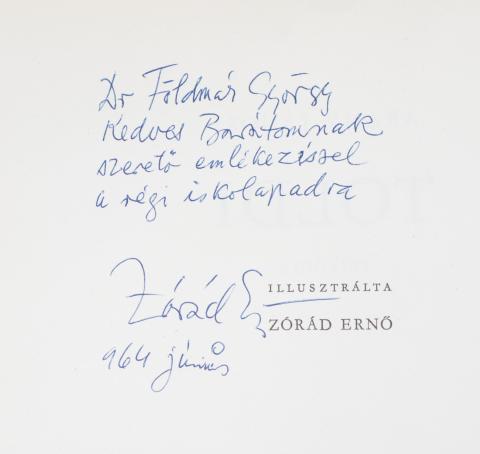 Dr Földmár György
Kedves Barátomnak
szerető emlékezéssel
a régi iskolapadra
Zórád E
ILLUSZTRÁLTA
ZÓRÁD ERNŐ
964 június